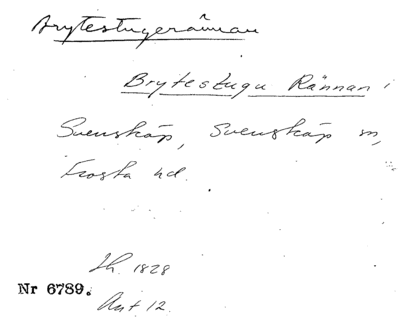 Brytestugerännan
Brytestugu Rännan
Svenskôp, Svenskôp sn,
Frosta hd.
Sk. 1828
Nr 6789.
Akt 12.